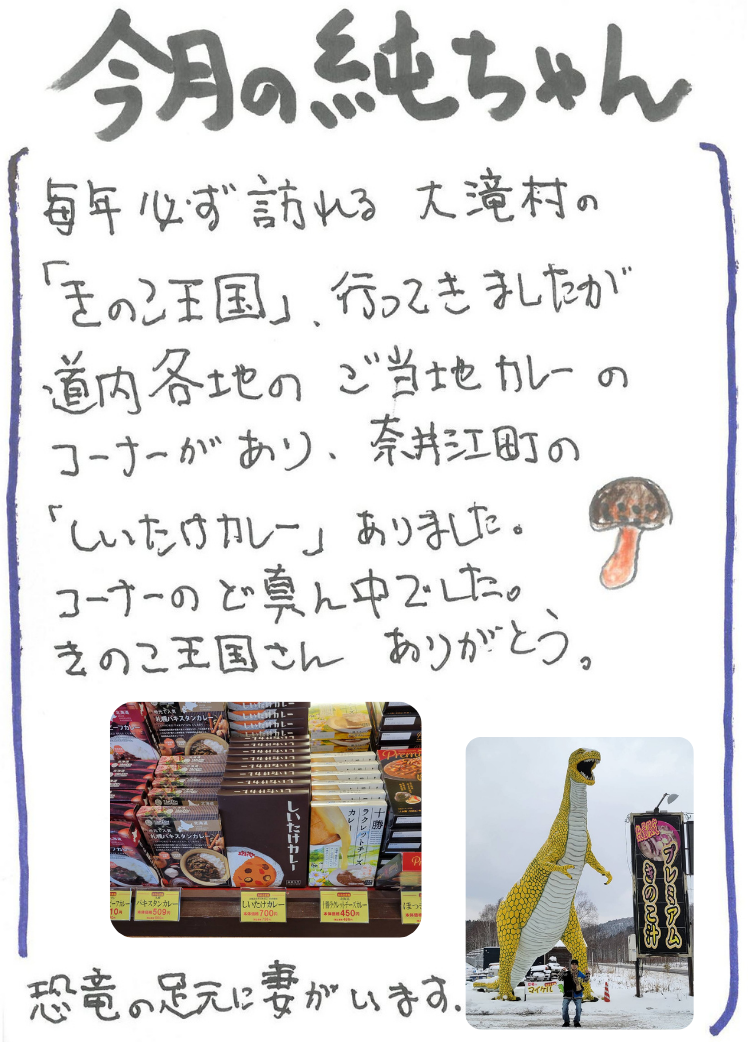 今月の純ちゃん
毎年必ず訪れる 大滝村の
「きのこ王国」、行ってきましたが
道内各地の ご当地カレーの
コーナーがあり、奈井江町の
「しいたけカレー」ありました。
コーナーのど真ん中でした。
きのこ王国さん ありがとう。
札幌パキスタンカレー
しいたけカレー
十勝
ラクレットチーズ
カレー
パキスタンカレー
509円
しいたけカレー
700円
十勝ラクレットチーズカレー
450円
プレミアム
きのこ汁
マイケル
恐竜の足元に妻がいます。